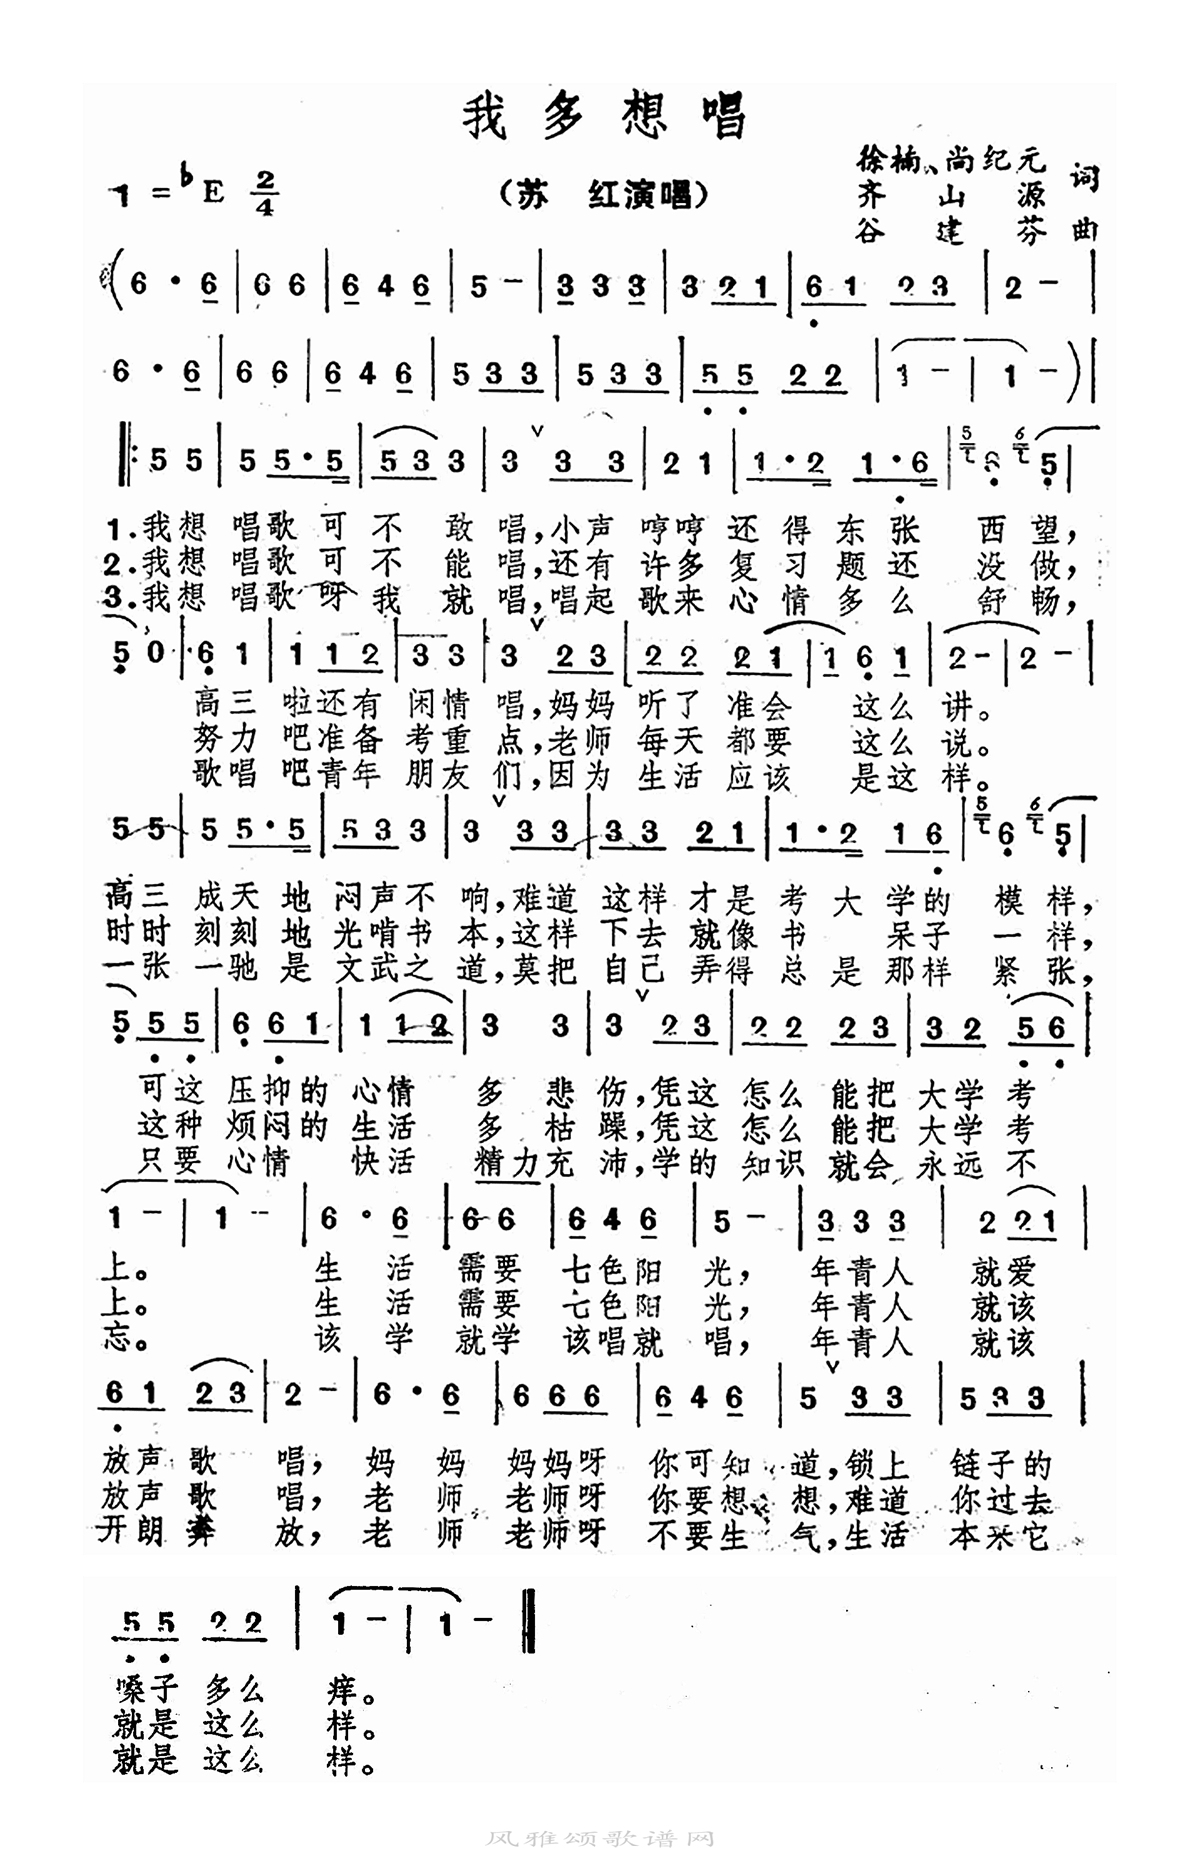 我多想唱
1=♭E 2/4
(苏 红演唱)
徐楠、尚纪元
齐山源 词
谷建芬 曲
(6·6|66|646|5-|333|321|61 23|2-|
6·6|66|646|533|533|55 22|1-|1-)|
‖:55|55·5|533|3 33|21|1·2 1·6|6 5|
1.我想唱歌可不敢唱,小声哼哼还得东张西望,
2.我想唱歌可不能唱,还有许多复习题还没做,
3.我想唱歌呀我就唱,唱起歌来心情多么舒畅,
50|61|112|33|3 23|22 21|161|2-|2-|
高三啦还有闲情唱,妈妈听了准会这么讲。
努力吧准备考重点,老师每天都要这么说。
歌唱吧青年朋友们,因为生活应该是这样。
55|55·5|533|3 33|33 21|1·2 16|6 5|
高三成天地闷声不响,难道这样才是考大学的模样,
时时刻刻地光啃书本,这样下去就像书呆子一样,
一张一驰是文武之道,莫把自己弄得总是那样紧张,
555|661|112|3 3|3 23|22 23|32 56|
可这压抑的心情多悲伤,凭这怎么能把大学考
这种烦闷的生活多枯躁,凭这怎么能把大学考
只要心情快活精力充沛,学的知识就会永远不
1-|1-|6·6|66|646|5-|333|221|
上。 生活需要七色阳光,年青人就爱
上。 生活需要七色阳光,年青人就该
忘。 该学就学该唱就唱,年青人就该
61 23|2-|6·6|666|646|5 33|533|
放声歌唱,妈妈妈妈呀你可知道,锁上链子的
放声歌唱,老师老师呀你要想想,难道你过去
开朗奔放,老师老师呀不要生气,生活本来它
55 22|1-|1-‖
嗓子多么痒。
就是这么样。
就是这么样。
风雅颂歌谱网